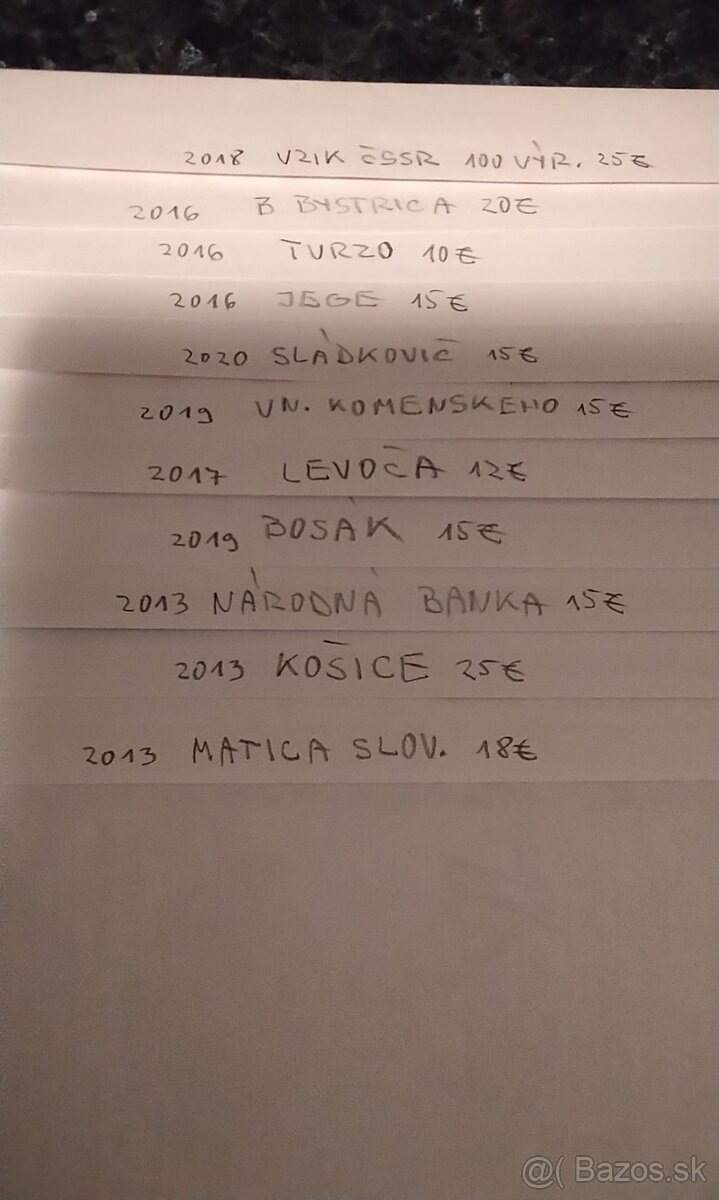 2018 VZIK ČSSR 100 VÝR. 25€
2016 B BYSTRICA 20€
2016 TURZO 10€
2016 JEGE 15€
2020 SLÁDKOVIČ 15€
2019 UN. KOMENSKÉHO 15€
2017 LEVOČA 12€
2019 BOSÁK 15€
2013 NÁRODNÁ BANKA 15€
2013 KOŠICE 25€
2013 MATICA SLOV. 18€
@( Bazos.sk